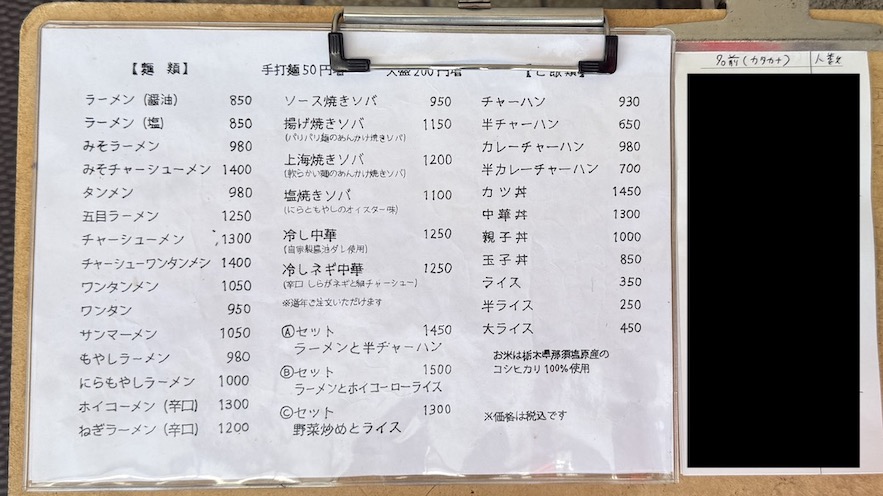 【麺 類】
ラーメン（醤油） 850
ラーメン（塩） 850
みそラーメン 980
みそチャーシューメン 1400
タンメン 980
五目ラーメン 1250
チャーシューメン 1300
チャーシューワンタンメン 1400
ワンタンメン 1050
ワンタン 950
サンマーメン 1050
もやしラーメン 980
にらもやしラーメン 1000
ホイコーメン（辛口） 1300
ねぎラーメン（辛口） 1200
手打麺50円増 大盛200円増
ソース焼きソバ 950
揚げ焼きソバ 1150
(パリパリ麺のあんかけ焼きソバ)
上海焼きソバ 1200
(軟らかい麺のあんかけ焼きソバ)
塩焼きソバ 1100
(にらともやしのオイスター味)
冷し中華 1250
(自家製醤油ダレ使用)
冷しネギ中華 1250
(辛口 しらがネギと細チャーシュー)
※通年ご注文いただけます
Ⓐセット 1450
ラーメンと半チャーハン
Ⓑセット 1500
ラーメンとホイコーローライス
Ⓒセット 1300
野菜炒めとライス
【ご飯類】
チャーハン 930
半チャーハン 650
カレーチャーハン 980
半カレーチャーハン 700
カツ丼 1450
中華丼 1300
親子丼 1000
玉子丼 850
ライス 350
半ライス 250
大ライス 450
お米は栃木県那須塩原産の
コシヒカリ100%使用
※価格は税込です
名前(カタカナ) 人数